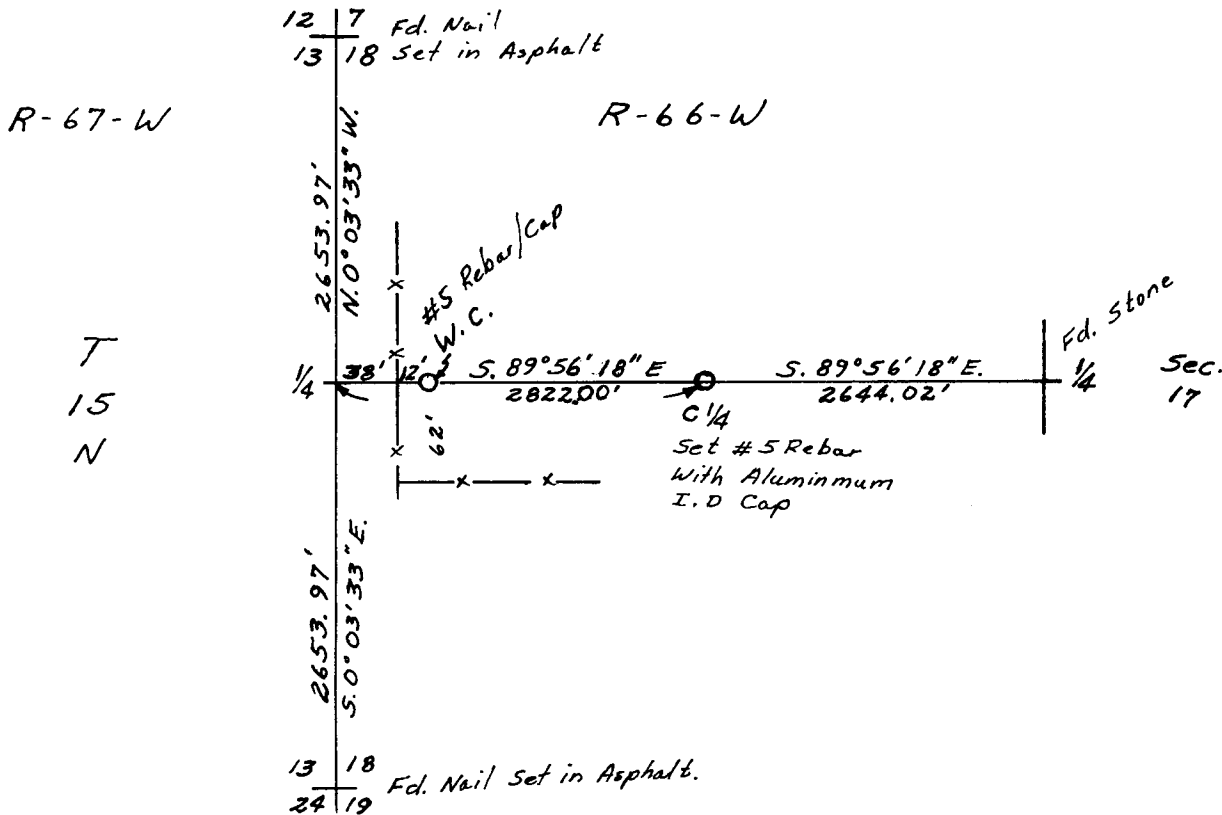 12 7 Fd. Nail
13 18 Set in Asphalt
R-67-W
R-66-W
2653.97'
N. 0° 03' 33" W.
#5 Rebar/Cap
W.C.
Fd. Stone
T
15
N
1/4
38'
12'
S. 89° 56' 18" E
2822.00'
S. 89° 56' 18" E.
2644.02'
1/4
Sec.
17
62'
C 1/4
Set #5 Rebar
With Aluminmum
I.D Cap
2653.97'
S. 0° 03' 33" E.
13 18
24 19
Fd. Nail Set in Asphalt.